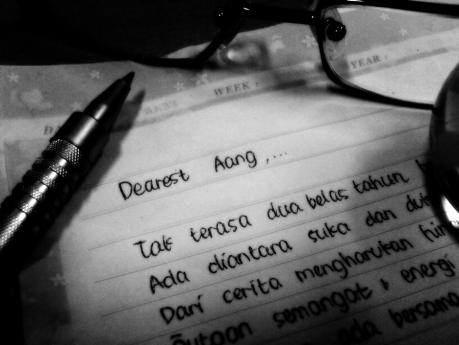 WEEK :
YEAR :
Dearest Aang,...
Tak terasa dua belas tahun
Ada diantara suka dan
Dari cerita mengharukan
semangat & energi
ada bersama